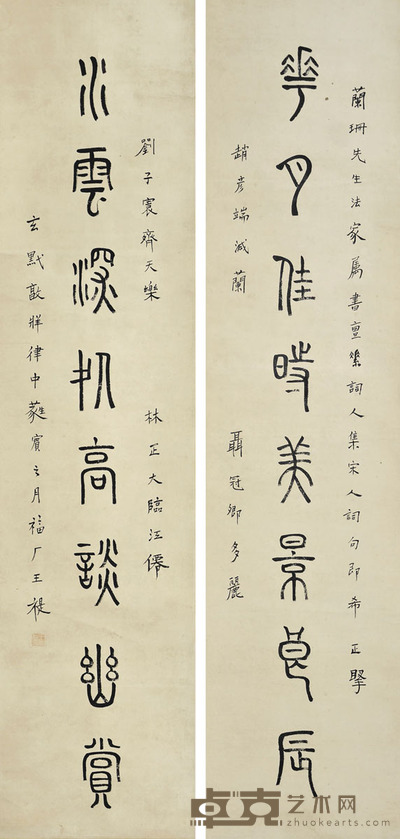 蘭珊先生法家屬書亶素詞人集宋人詞句即希正掔
華月佳時美景良辰
趙彥端減蘭
聶冠卿多麗
劉子寰齊天樂
林正大臨江僊
水雲深処高談幽賞
玄黓敦牂律中蕤賓之月福厂王禔
卓克艺术网
zhuokearts.com